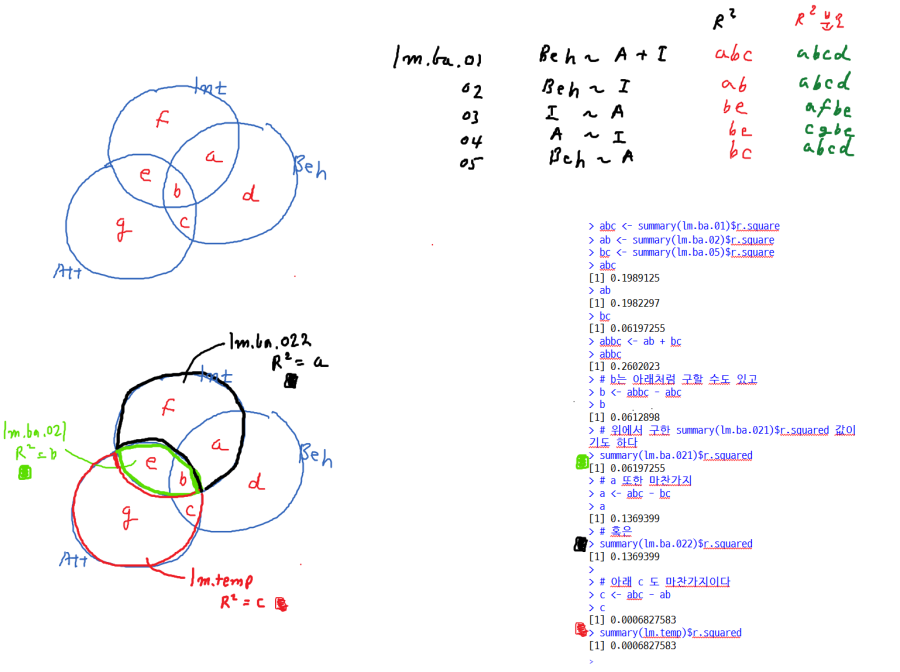 R² R² 분모
lm.ba.01 Beh ~ A + I abc abcd
02 Beh ~ I ab abcd
03 I ~ A be afbe
04 A ~ I be cgbe
05 Beh ~ A bc abcd
Int
f
a
Beh
e
b
d
g
c
Att
> abc <- summary(lm.ba.01)$r.square
> ab <- summary(lm.ba.02)$r.square
> bc <- summary(lm.ba.05)$r.square
> abc
[1] 0.1989125
> ab
[1] 0.1982297
> bc
[1] 0.06197255
> abbc <- ab + bc
> abbc
[1] 0.2602023
> # b는 아래처럼 구할 수도 있고
> b <- abbc - abc
> b
[1] 0.0612898
> # 위에서 구한 summary(lm.ba.021)$r.squared 값이
기도 하다
> summary(lm.ba.021)$r.squared
[1] 0.06197255
> # a 또한 마찬가지
> a <- abc - bc
> a
[1] 0.1369399
> # 혹은
> summary(lm.ba.022)$r.squared
[1] 0.1369399
>
> # 아래 c 도 마찬가지이다
> c <- abc - ab
> c
[1] 0.0006827583
> summary(lm.temp)$r.squared
[1] 0.0006827583
>
lm.ba.022
R² = a
Int
f
lm.ba.021
R² = b
a
Beh
e
b
d
g
c
Att
lm.temp
R² = c